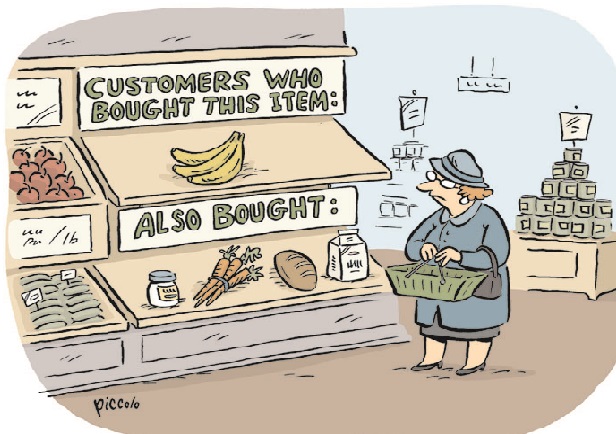 CUSTOMERS WHO
BOUGHT THIS ITEM:
ALSO BOUGHT:
/lb
piccolo